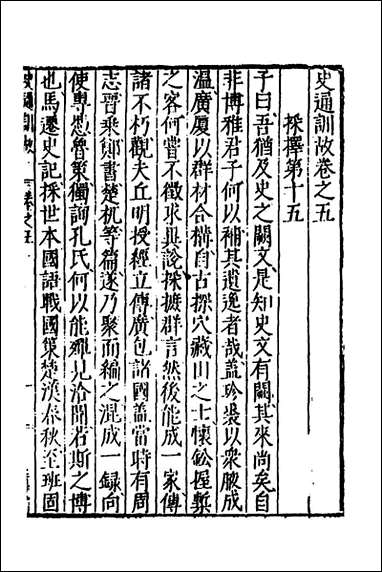 史通訓故卷之五
採擇第十五
子曰吾猶及史之闕文是知史文有闕其來尚矣自
非博雅君子何以補其遺逸者哉蓋珍裘以衆腋成
温廣厦以群材合構自古探穴藏山之士懷鈆握槧
之客何嘗不徵求異說採摭群言然後能成一家傳
諸不朽觀夫丘明授經立傳廣包諸國蓋當時有周
志晉乗鄭書楚杌等篇遂乃聚而編之混成一録向
使專憑魯策獨詢孔氏何以能殫見洽聞若斯之博
也馬遷史記採世本國語戰國策楚漢春秋至班固
史通訓故
卷之五